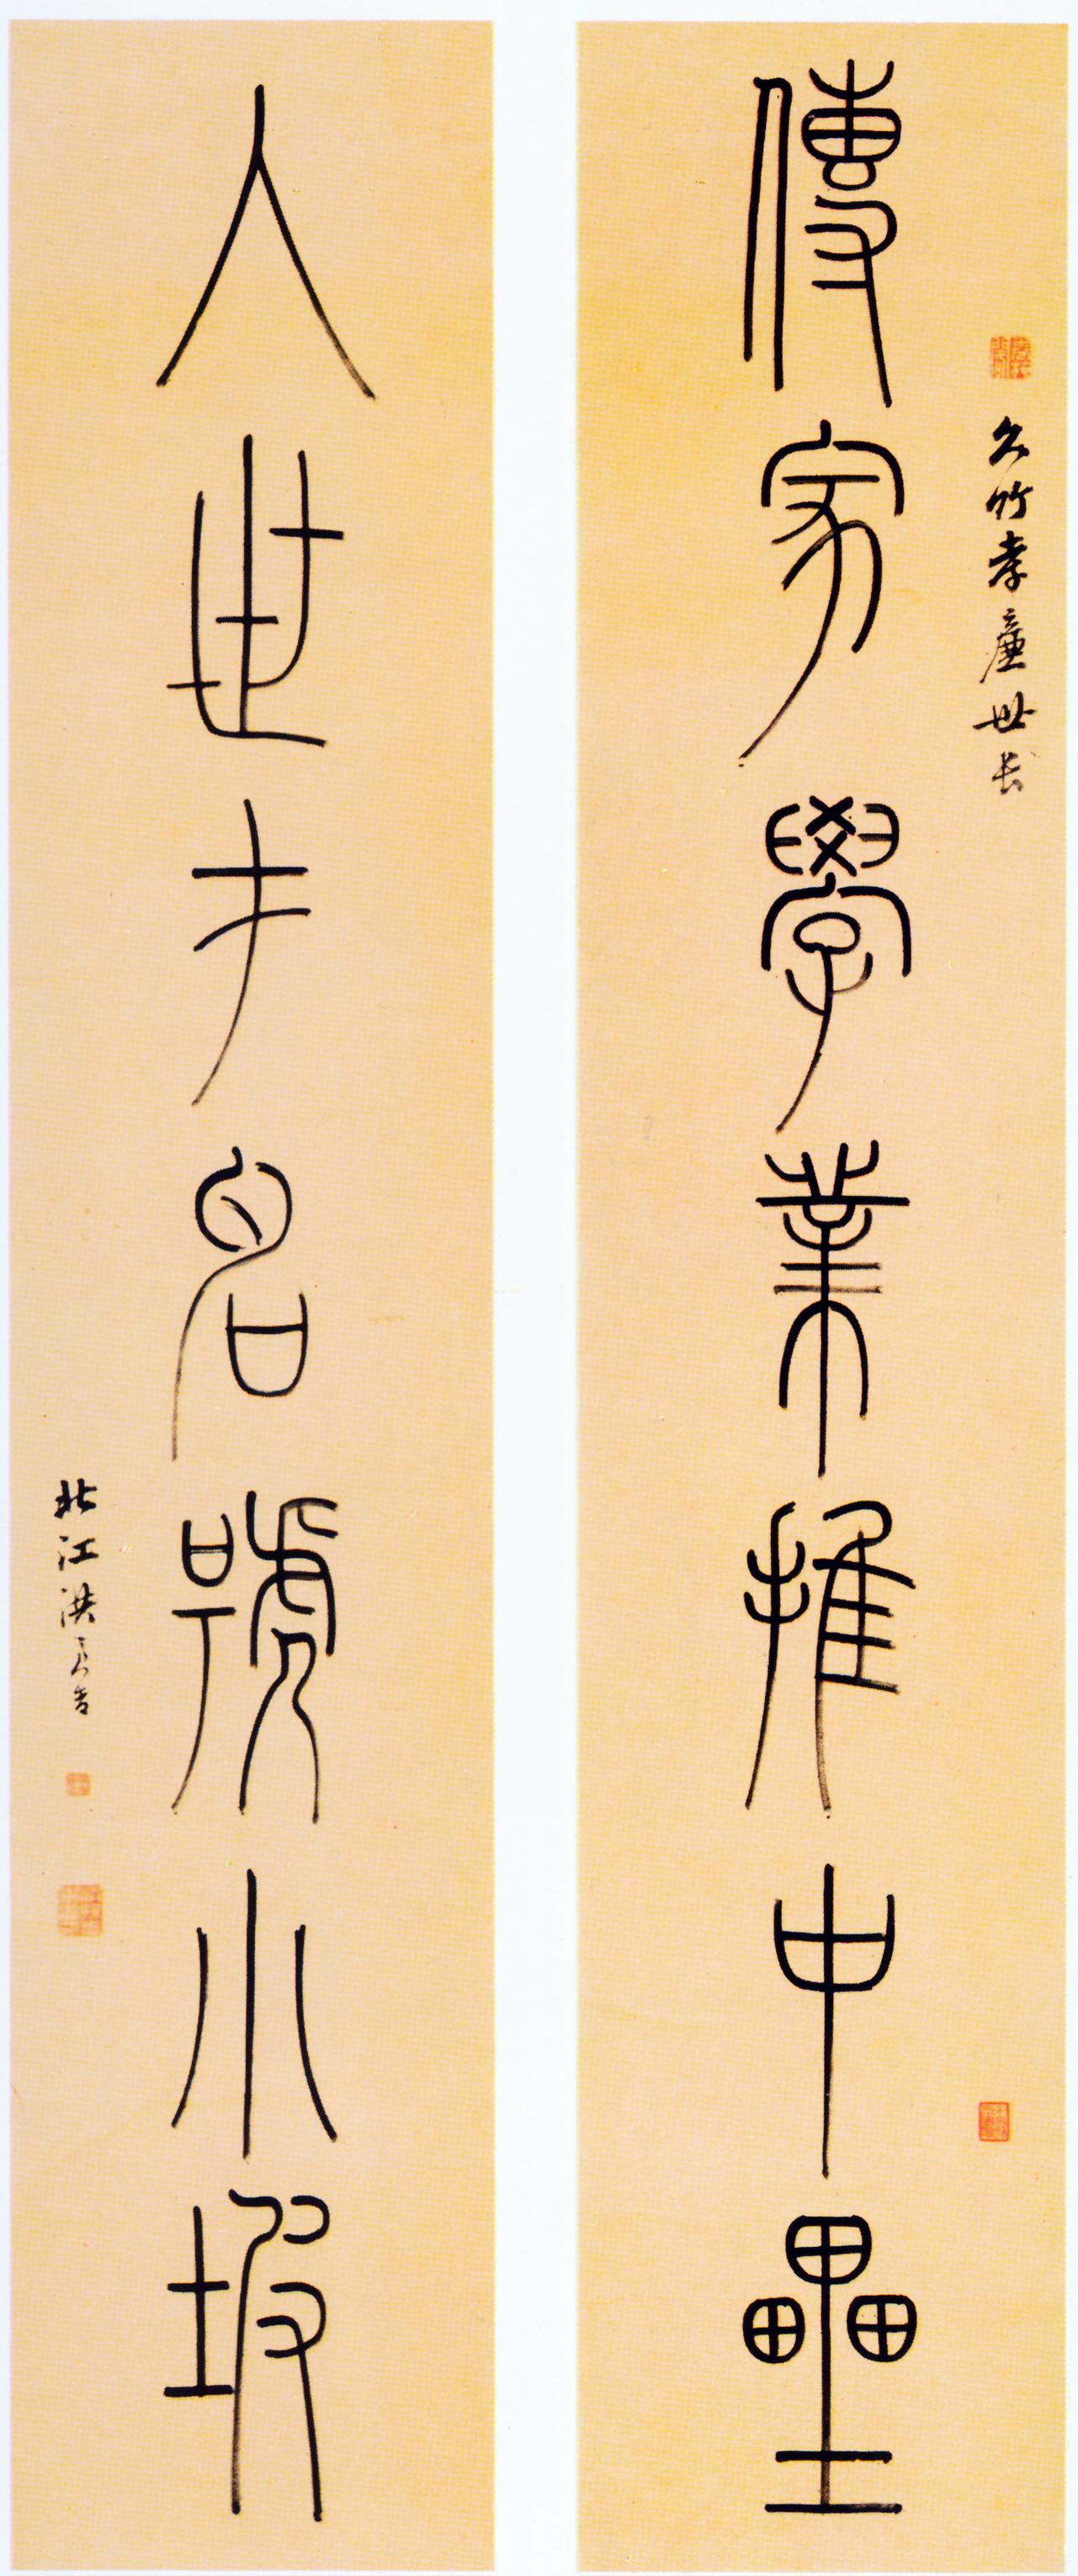 久竹孝廉世長
傳家學業推中壘
入世才名號小坡
北江洪亮吉